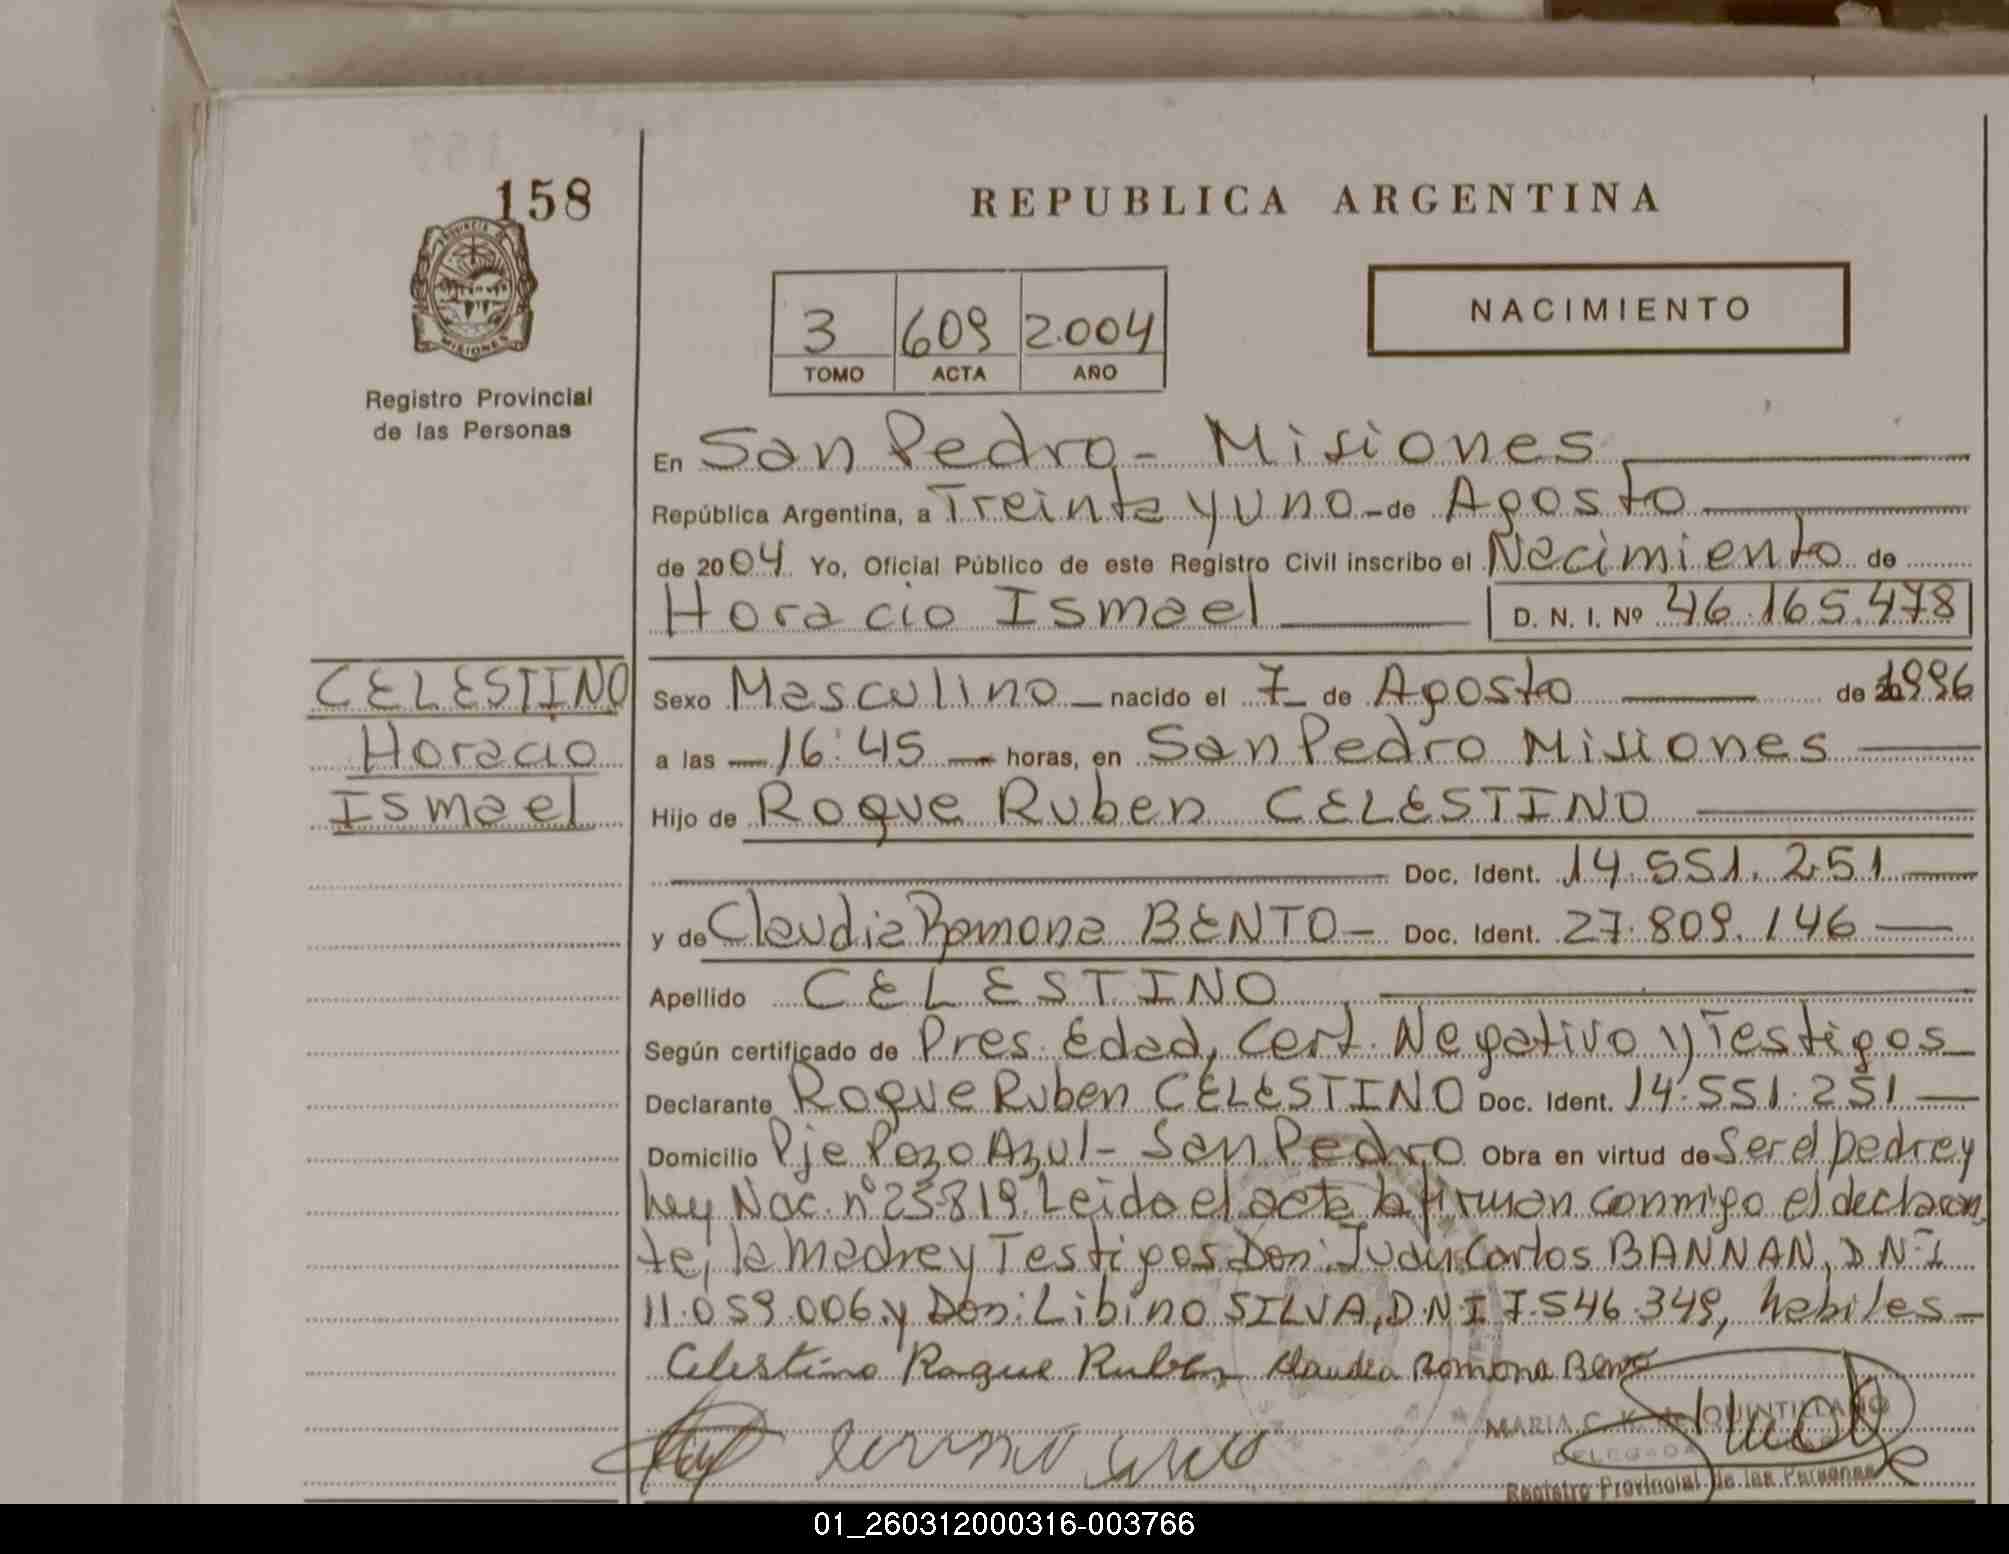 158
REPUBLICA ARGENTINA
PROVINCIA DE
MISIONES
Registro Provincial
de las Personas
3 609 2.004
TOMO ACTA AÑO
NACIMIENTO
En San Pedro - Misiones
República Argentina, a Treinta y uno - de Agosto
de 2004 Yo, Oficial Público de este Registro Civil inscribo el Nacimiento de
Horacio Ismael D. N. I. Nº 46.165.478
CELESTINO
Horacio
Ismael
Sexo Masculino nacido el 7 de Agosto de 1996
a las 16:45 horas, en San Pedro Misiones
Hijo de Roque Ruben CELESTINO
Doc. Ident. 14.551.251
y de Claudia Ramona BENTO - Doc. Ident. 27.809.146
Apellido CELESTINO
Según certificado de Pres. Edad, Cert. Negativo y Testigos
Declarante Roque Ruben CELESTINO Doc. Ident. 14.551.251
Domicilio Pje Pozo Azul - San Pedro Obra en virtud de Ser el padre y
Ley Nac. nº 25.819. Leida el acta la firman conmigo el declaran
te, la madre y Testigos Don: Juan Carlos BANNAN, D.N.I
11.059.006 y Don: Libino SILVA, D.N.I 7.546.349, habiles -
Celestino Roque Ruben Claudia Romona Bento
MARIA C. K. de QUINTILLANO
DELEGADA
Registro Provincial de las Personas
01_260312000316-003766